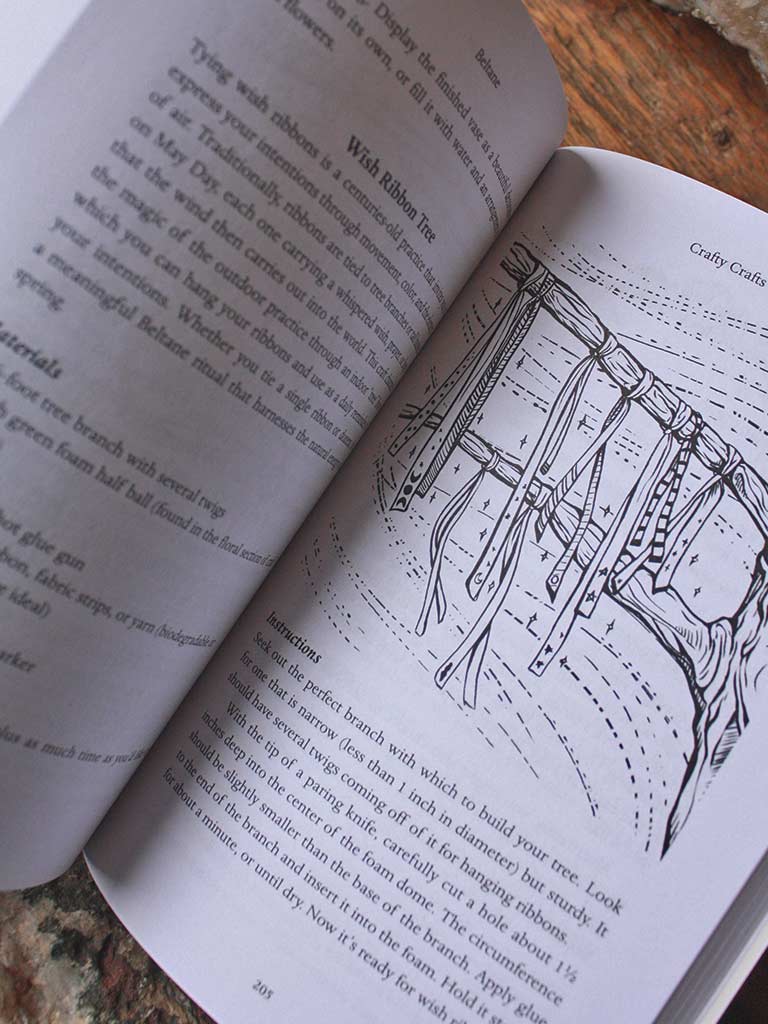 Beltane
Display the finished vase as a beautiful
on its own, or fill it with water and an
flowers.
Wish Ribbon Tree
Tying wish ribbons is a centuries-old practice that
express your intentions through movement, color, and the
of air. Traditionally, ribbons are tied to tree branches or
on May Day, each one carrying a whispered wish, prayer,
that the wind then carries out into the world. This craft
the magic of the outdoor practice through an indoor
which you can hang your ribbons and use as a daily
your intentions. Whether you tie a single ribbon or
a meaningful Beltane ritual that harnesses the natural
spring.
Materials
-foot tree branch with several twigs
green foam half ball (found in the floral section of
hot glue gun
ribbon, fabric strips, or yarn (biodegradable is
ideal)
marker
plus as much time as you'd like
Crafty Crafts
Instructions
Seek out the perfect branch with which to build your tree. Look
for one that is narrow (less than 1 inch in diameter) but sturdy. It
should have several twigs coming off of it for hanging ribbons.
With the tip of a paring knife, carefully cut a hole about 1½
inches deep into the center of the foam dome. The circumference
should be slightly smaller than the base of the branch. Apply glue
to the end of the branch and insert it into the foam. Hold it
for about a minute, or until dry. Now it's ready for wish
205